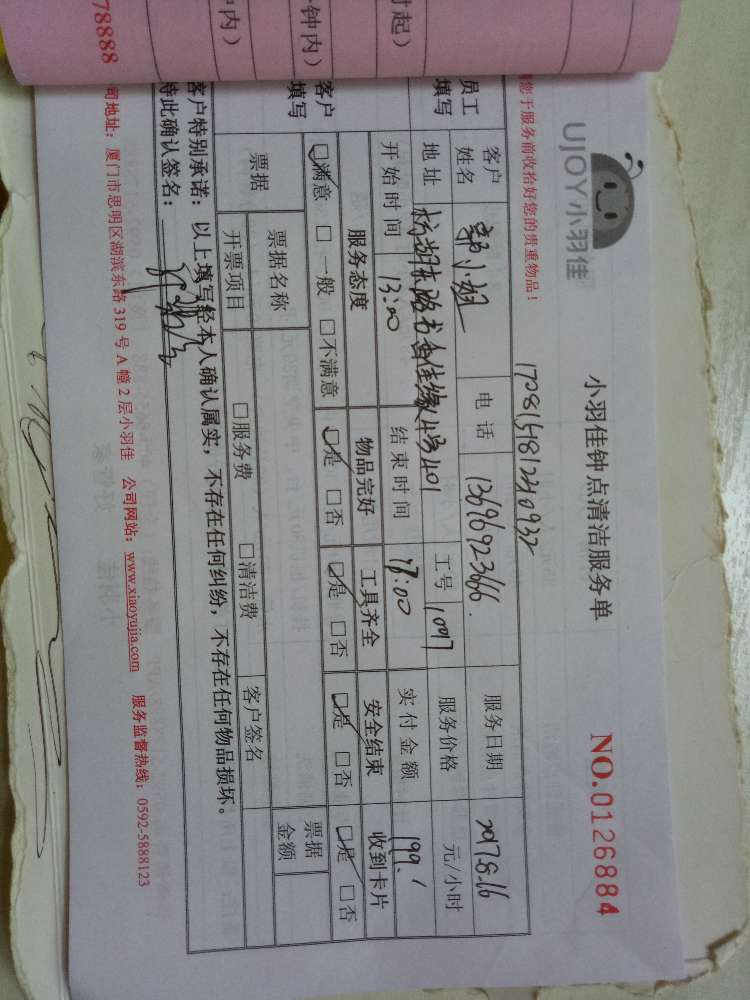 78888
钟内)
钟内)
时起)
UJOY小羽佳
小羽佳钟点清洁服务单
NO.0126884
您于服务前收拾好您的贵重物品!
员工填写
客户姓名
小姐
电话
13696923666
服务日期
2017.8.16
地址
工号
1097
服务价格
元/小时
开始时间
13:00
结束时间
17:00
实付金额
199.
客户填写
服务态度
物品完好
工具齐全
安全结束
收到卡片
☑满意 □一般 □不满意
☑是 □否
☑是 □否
☑是 □否
☑是 □否
票据
票据名称
票据金额
开票项目
□服务费 □清洁费
客户签名
客户特别承诺:以上填写经本人确认属实,不存在任何纠纷,不存在任何物品损坏。
特此确认签名:
司地址:厦门市思明区湖滨东路 319 号 A 幢 2 层小羽佳 公司网站:www.xiaoyujia.com 服务监督热线:0592-5888123